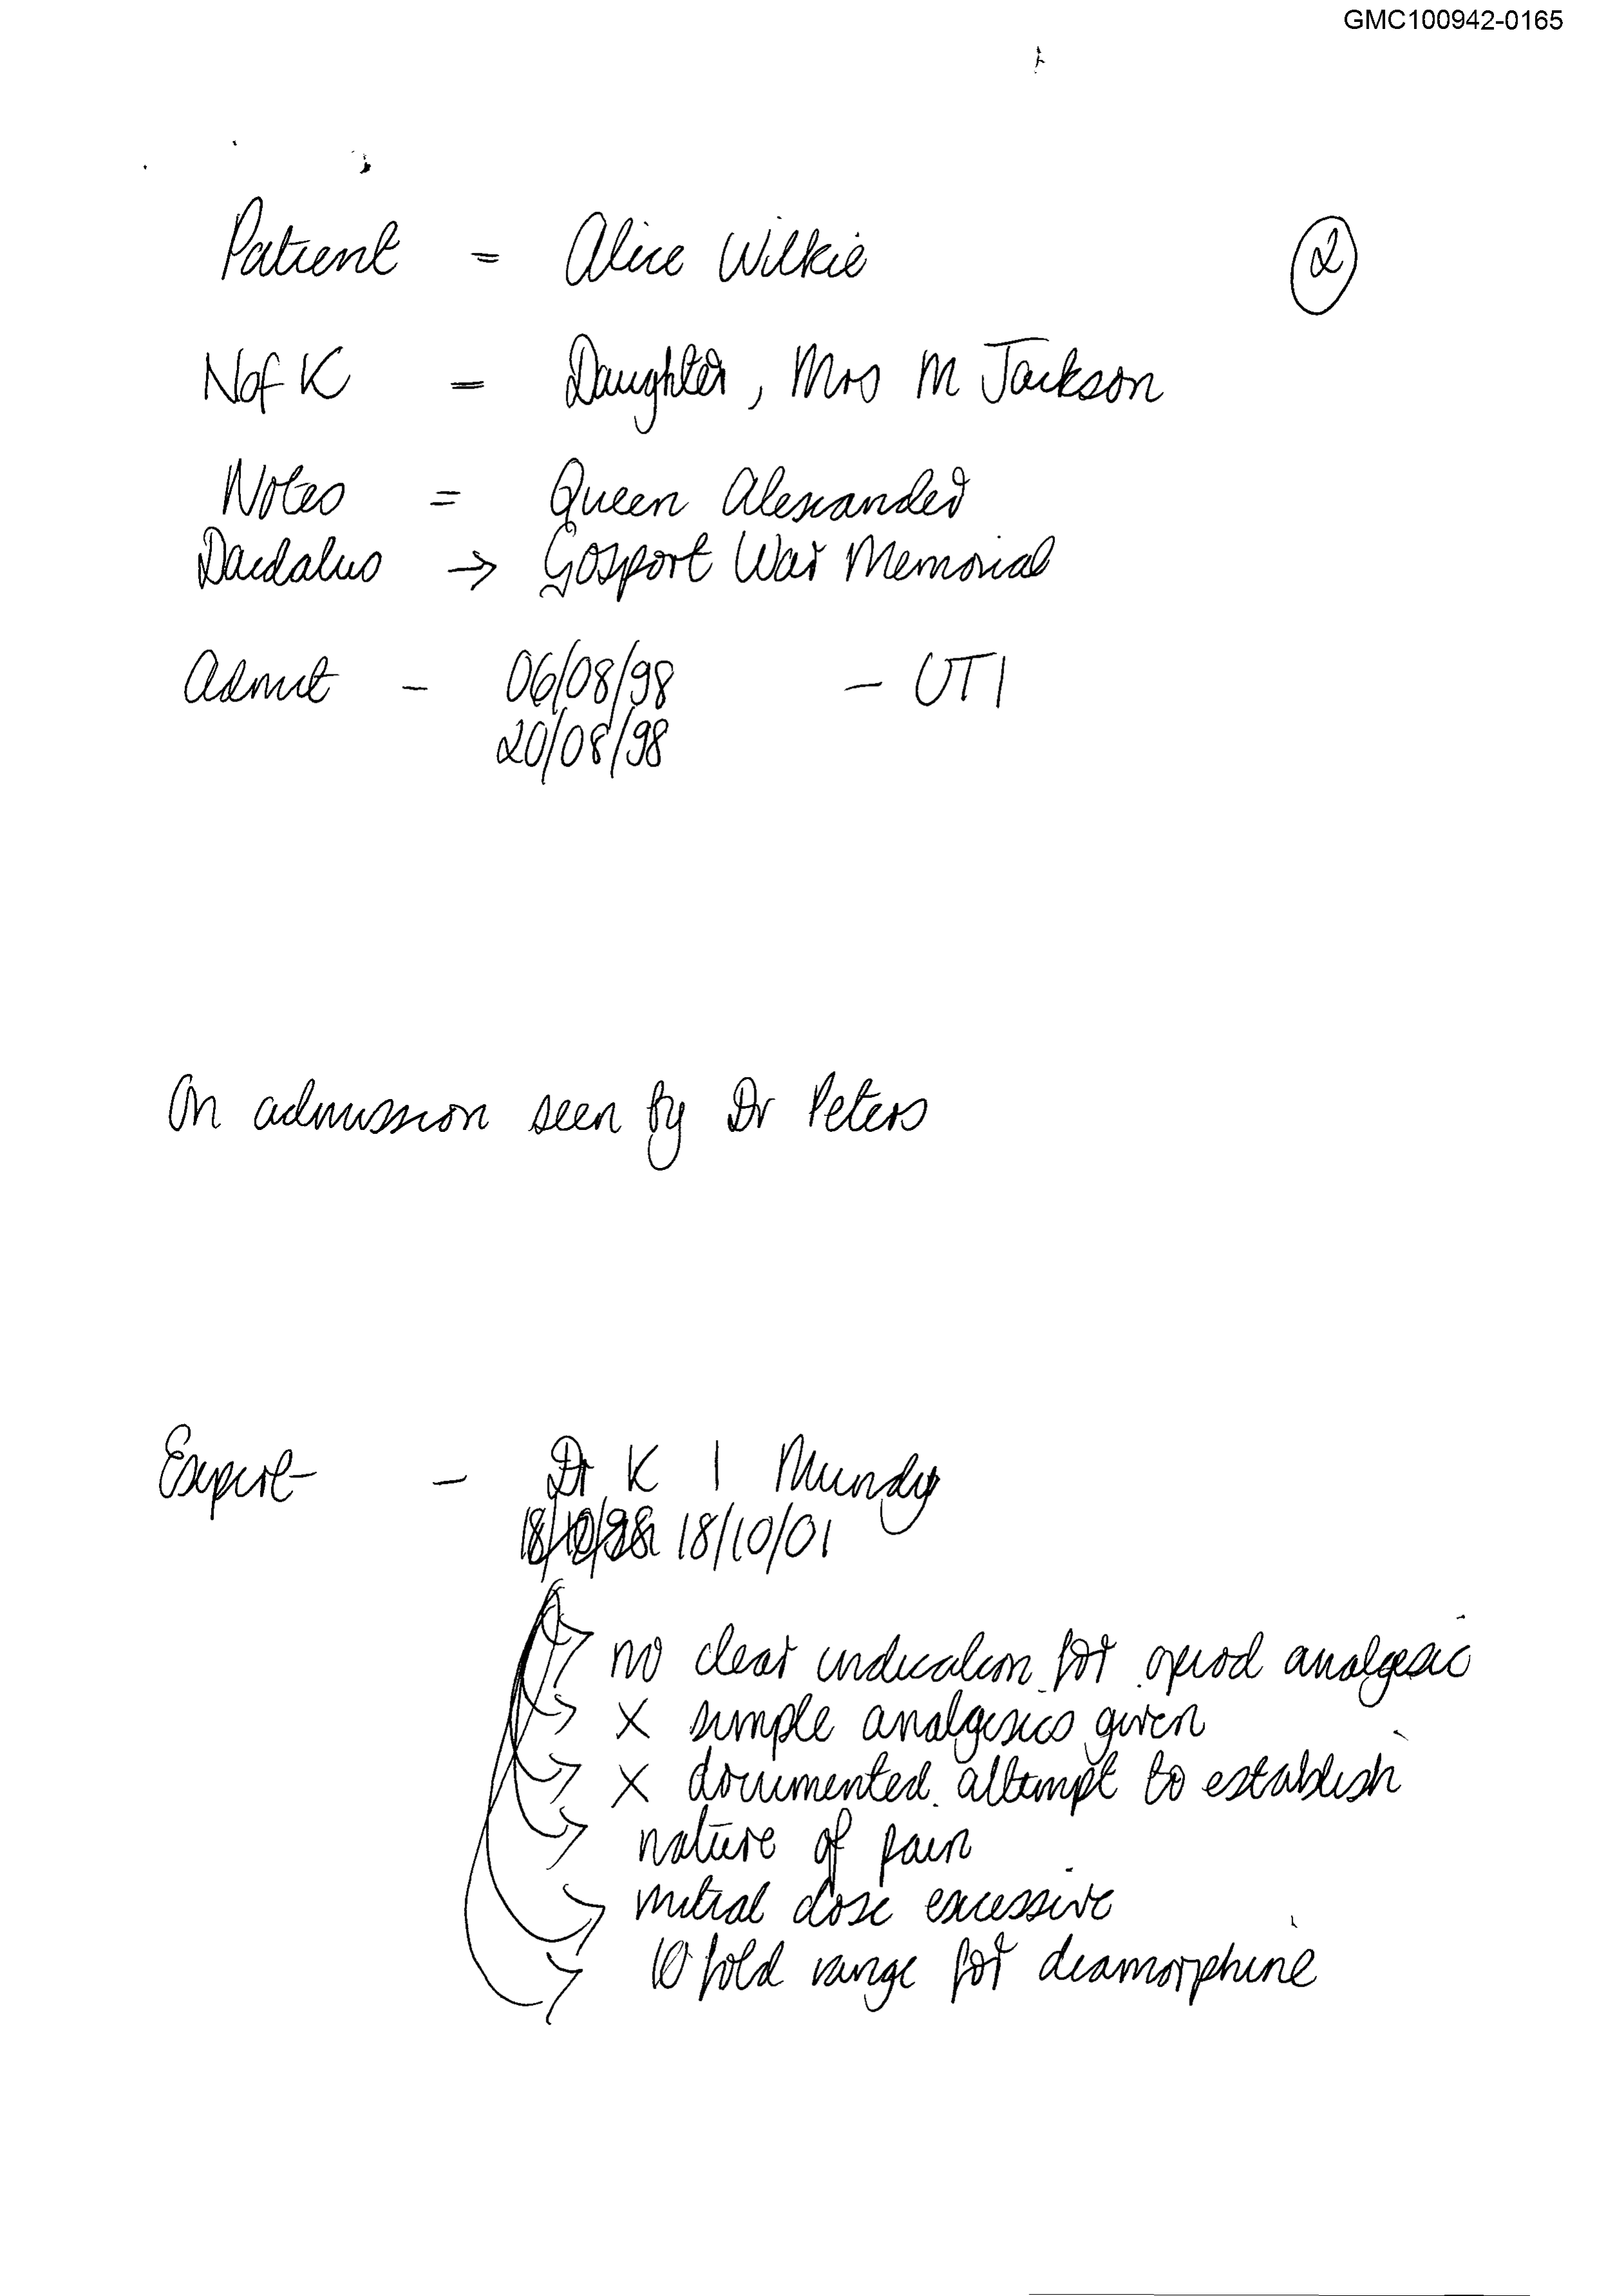 GMC100942-0165
Patient = Alice Wilkie ②
N of K = Daughter, Mrs M Jackson
Notes = Queen Alexander
Daedalus → Gosport War Memorial
Admit - 06/08/98 - UTI
20/08/98
On admission seen by Dr Peters
Expert - Dr K I Mundy
18/10/01
no clear indication for opiod analgesic
X simple analgesics given
X documented attempt to establish
nature of pain
initial dose excessive
10 fold range for diamorphine